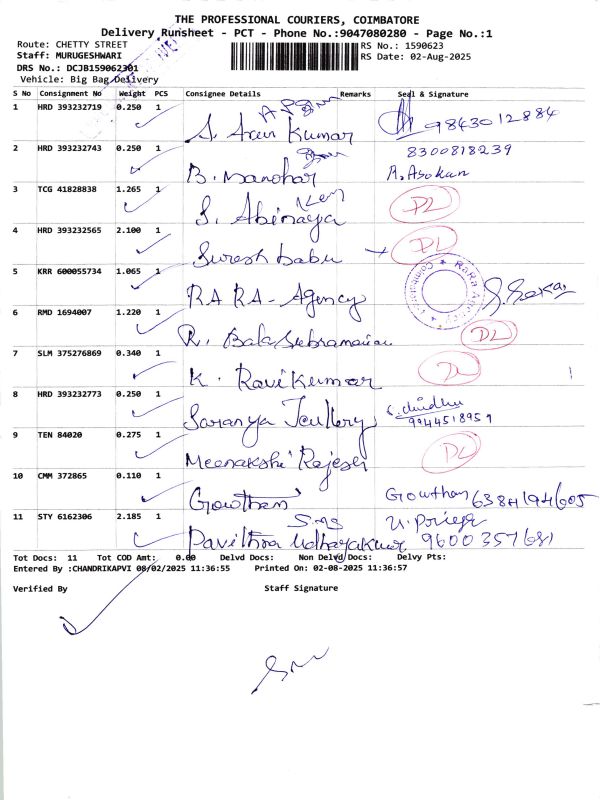 THE PROFESSIONAL COURIERS, COIMBATORE
Delivery Runsheet - PCT - Phone No.:9047080280 - Page No.:1
Route: CHETTY STREET
RS No.: 1590623
Staff: MURUGESHWARI
RS Date: 02-Aug-2025
DRS No.: DCJB159062301
Vehicle: Big Bag Delivery
S No Consignment No Weight PCS Consignee Details Remarks Seal & Signature
1 HRD 393232719 0.250 1 S. Arun Kumar 9843012884
2 HRD 393232743 0.250 1 B. Manohar 8300818239
R. Asokan
3 TCG 41828838 1.265 1 S. Abinaya DL
4 HRD 393232565 2.100 1 Suresh babu DL
5 KRR 600055734 1.065 1 RARA - Agency S. Sekar
RaRa Agency Coimbatore
6 RMD 1694007 1.220 1 R. Bala Subramanian DL
7 SLM 375276869 0.340 1 K. Ravi Kumar DL
8 HRD 393232773 0.250 1 Saranya 9944518959
9 TEN 84020 0.275 1 Meenakshi Rajesh DL
10 CMM 372865 0.110 1 Gowtham Gowtham 6384194605
11 STY 6162306 2.185 1 Pavithra Udhayakumar U. Priya
9600357681
Tot Docs: 11 Tot COD Amt: 0.00 Delvd Docs: Non Delvd Docs: Delvy Pts:
Entered By :CHANDRIKAPVI 08/02/2025 11:36:55 Printed On: 02-08-2025 11:36:57
Verified By Staff Signature